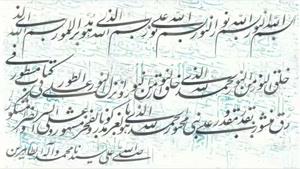 بسم الله النور بسم الله نور النور بسم الله نور على نور بسم الله الذي هو مدبر الامور بسم الله الذي
خلق النور من النور الحمد لله الذي خلق النور من النور وانزل النور على الطور في كتاب مسطور في
رق منشور بقدر مقدور على نبي محبور الحمد لله الذي هو بالعز مذكور وبالفخر مشهور وعلى السراء والضراء مشكور
وصلى الله على سيدنا محمد وآله الطاهرين